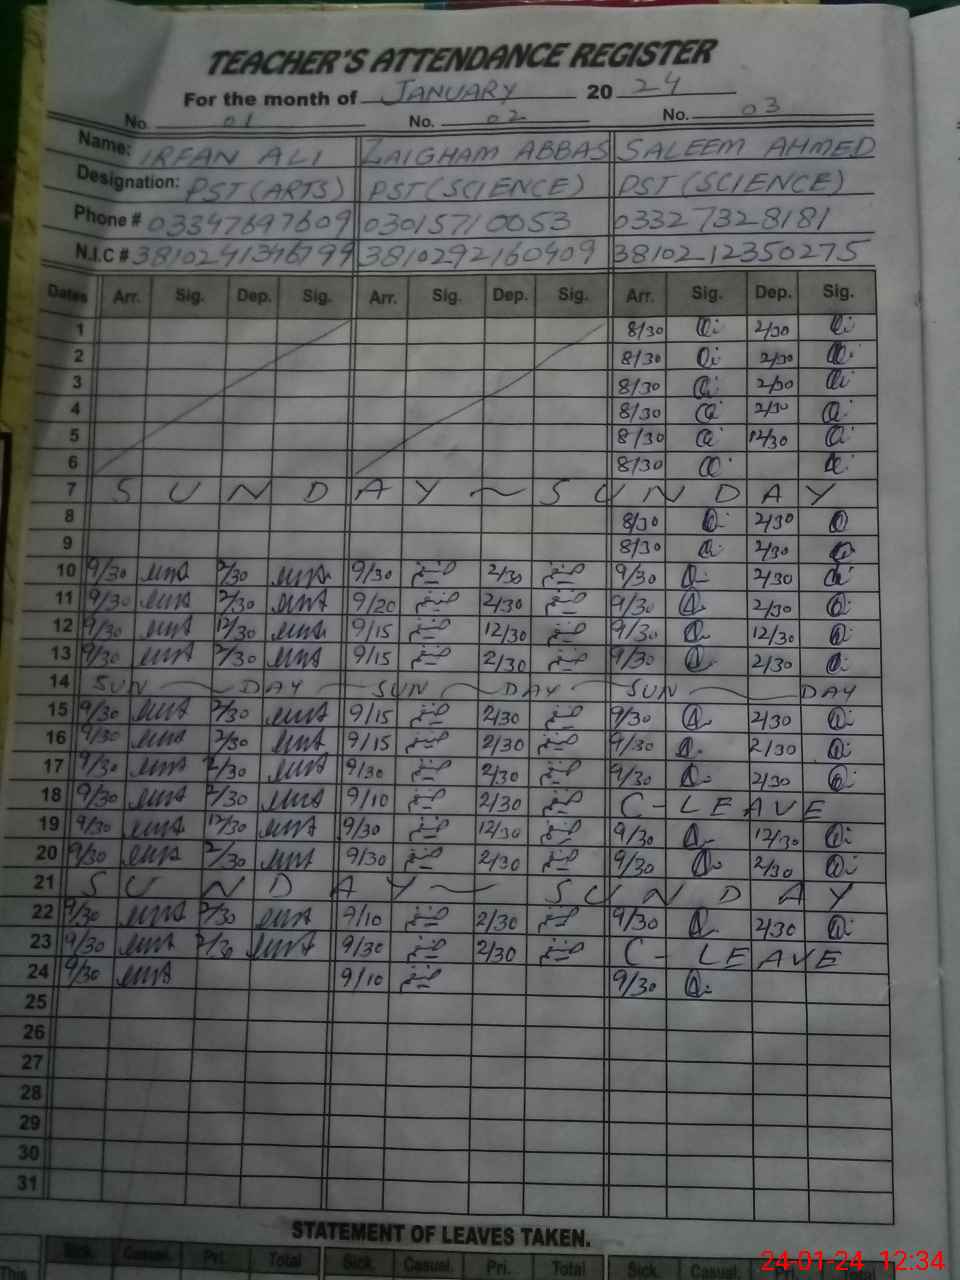 TEACHER'S ATTENDANCE REGISTER
For the month of JANUARY 20 24
No. 01 No. 02 No. 03
Name: IRFAN ALI ZAIGHAM ABBAS SALEEM AHMED
Designation: PST(ARTS) PST(SCIENCE) PST(SCIENCE)
Phone # 03347697609 03015710053 03327328181
N.I.C # 3810241346799 3810292160409 3810212350275
Dates Arr. Sig. Dep. Sig. Arr. Sig. Dep. Sig. Arr. Sig. Dep. Sig.
1 8/30 2/30
2 8/30 2/30
3 8/30 2/30
4 8/30 2/30
5 8/30 12/30
6 8/30
7 SUNDAY ~ SUNDAY
8 8/30 2/30
9 8/30 2/30
10 9/30 2/30 9/30 2/30 9/30 2/30
11 9/30 2/30 9/20 2/30 9/30 2/30
12 9/30 12/30 9/15 12/30 9/30 12/30
13 9/30 2/30 9/15 2/30 9/30 2/30
14 SUN ~ DAY ~ SUN ~ DAY ~ SUN ~ DAY
15 9/30 2/30 9/15 2/30 9/30 2/30
16 9/30 2/30 9/15 2/30 9/30 2/30
17 9/30 2/30 9/30 2/30 9/30 2/30
18 9/30 2/30 9/10 2/30 C-LEAVE
19 9/30 12/30 9/30 12/30 9/30 12/30
20 9/30 2/30 9/30 2/30 9/30 2/30
21 SUNDAY ~ SUNDAY
22 9/30 2/30 9/10 2/30 9/30 2/30
23 9/30 2/30 9/30 2/30 C-LEAVE
24 9/30 9/10 9/30
25
26
27
28
29
30
31
STATEMENT OF LEAVES TAKEN.
Sick. Casual. Pri. Total Sick. Casual. Pri. Total Sick. Casual.
This
24-01-24 12:34